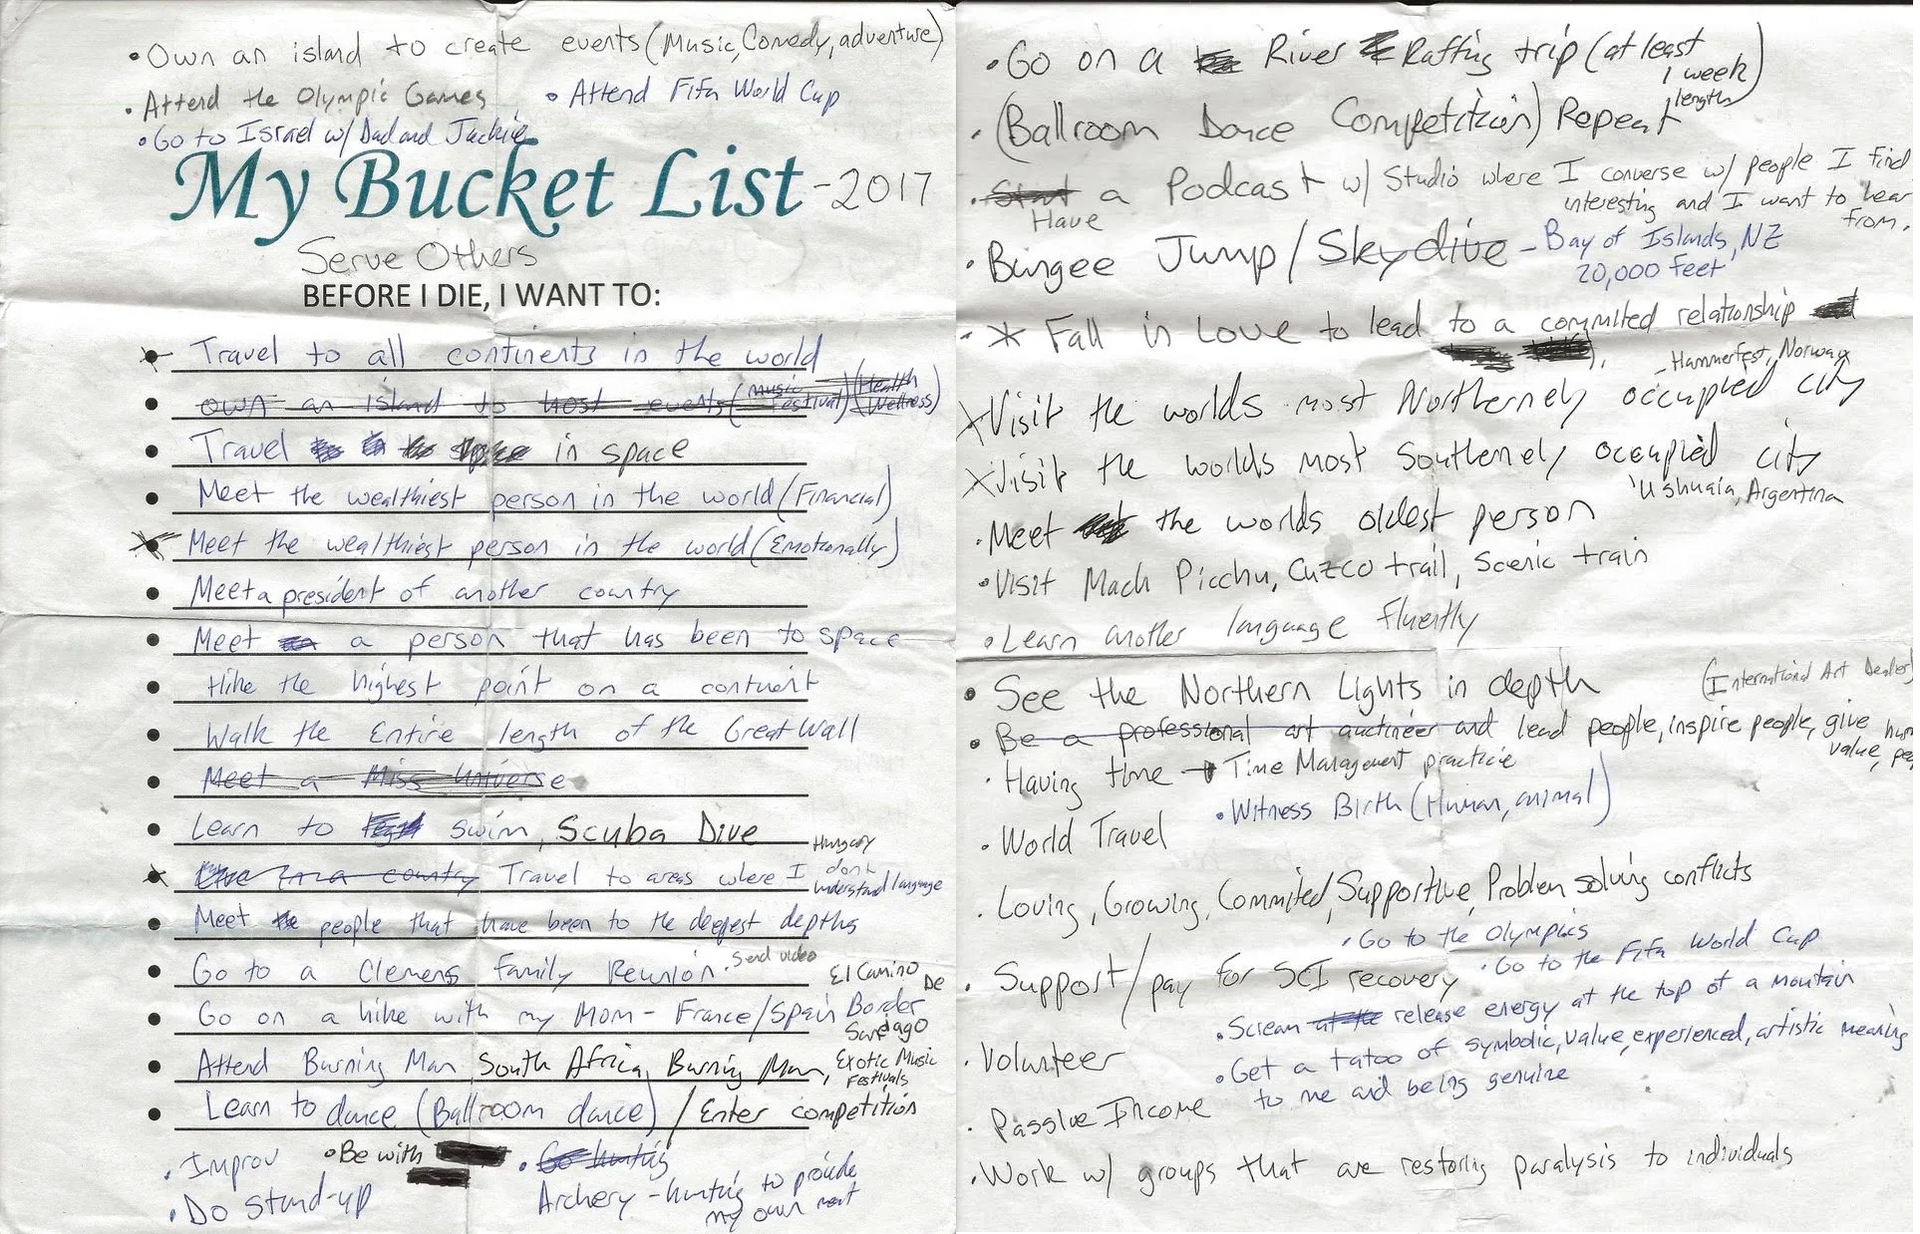 • Own an island to create events (Music, Comedy, adventure)
• Attend the Olympic Games • Attend Fifa World Cup
• Go to Israel w/ Dad and Jackie
My Bucket List - 2017
Serve Others
BEFORE I DIE, I WANT TO:
• Travel to all continents in the world
• own an island to host events (music Festival) (Health Wellness)
• Travel in space
• Meet the wealthiest person in the world (Financial)
• Meet the wealthiest person in the world (Emotionally)
• Meet a president of another country
• Meet a person that has been to space
• Hike the highest point on a continent
• Walk the Entire length of the Great Wall
• Meet a Miss Universe
• Learn to swim, Scuba Dive
• Live in a country Travel to areas where I don't understand language
Hungary
• Meet people that have been to the deepest depths
• Go to a Clemens Family Reunion. Send video
• Go on a hike with my Mom - France/Spain Border
El Camino De Santiago
• Attend Burning Man South Africa, Burning Man, Exotic Music Festivals
• Learn to dance (Ballroom dance) / Enter competition
• Improv • Be with • Go hunting
• Do Stand-up Archery - hunting to provide
my own meat
• Go on a River Rafting trip (at least 1 week length)
• (Ballroom Dance Competition) Repeat
• Start a Podcast w/ Studio where I converse w/ people I find
Have interesting and I want to hear from.
• Bungee Jump / Skydive - Bay of Islands, NZ
20,000 feet
• * Fall in Love to lead to a commited relationship
- Hammerfest, Norway
Visit the worlds most Northernely occupied city
Visit the worlds most Southernely occupied city
Ushuaia, Argentina
• Meet the worlds oldest person
• Visit Mach Picchu, Cuzco trail, Scenic train
• Learn another language fluently
• See the Northern Lights in depth (International Art Dealer)
• Be a professional art auctineer and lead people, inspire people, give
value,
• Having time → Time Management practice
• Witness Birth (Human, animal)
• World Travel
• Loving, Growing, Commited, Supportive, Problem solving conflicts
• Go to the Olympics
• Support/pay for SCI recovery • Go to the Fifa World Cup
• Scream release energy at the top of a moutain
• Volunteer
• Get a tatoo of symbolic, value, experienced, artistic meaning
to me and being genuine
• Passive Income
• Work w/ groups that are restoring paralysis to individuals